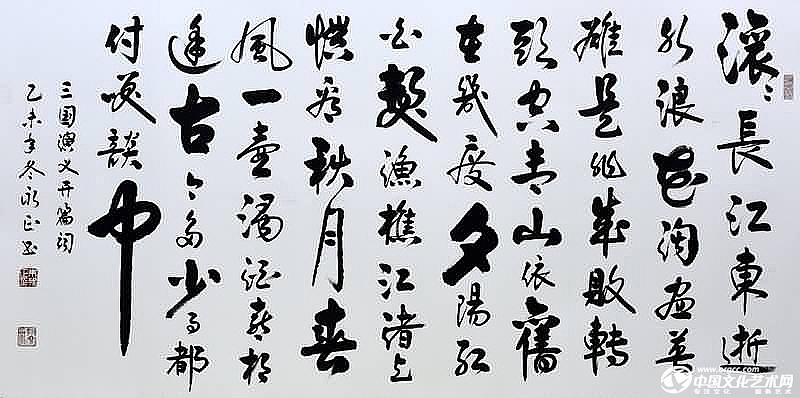 滚〻長江東逝
水浪花淘盡英
雄是非成敗轉
頭空青山依舊
在幾度夕陽紅
白髮漁樵江渚上
慣看秋月春
風一壺濁酒喜相
逢古今多少事都
付笑談中
三国演义开篇词
乙未年冬永正书
中国文化艺术网